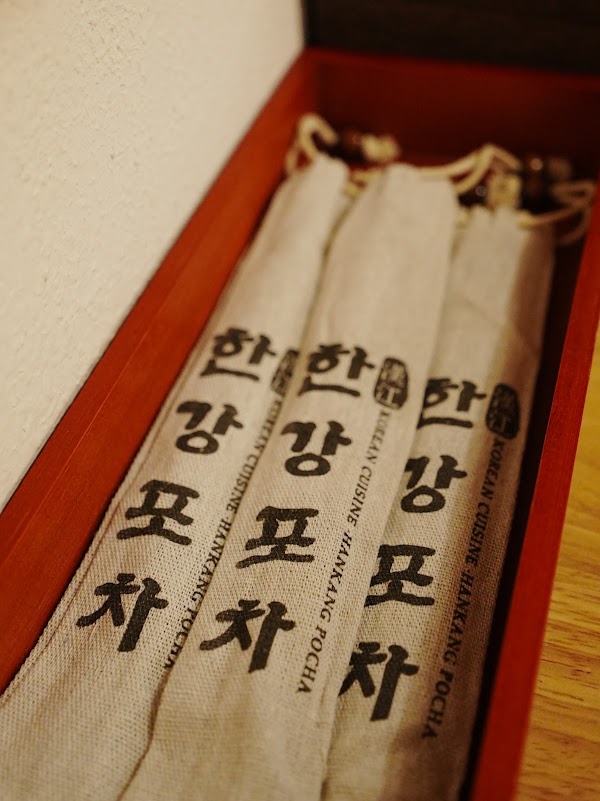 한강포차
漢江
KOREAN CUISINE·HANKANG POCHA
한강포차
漢江
KOREAN CUISINE·HANKANG POCHA
한강포차
漢江
KOREAN CUISINE·HANKANG POCHA